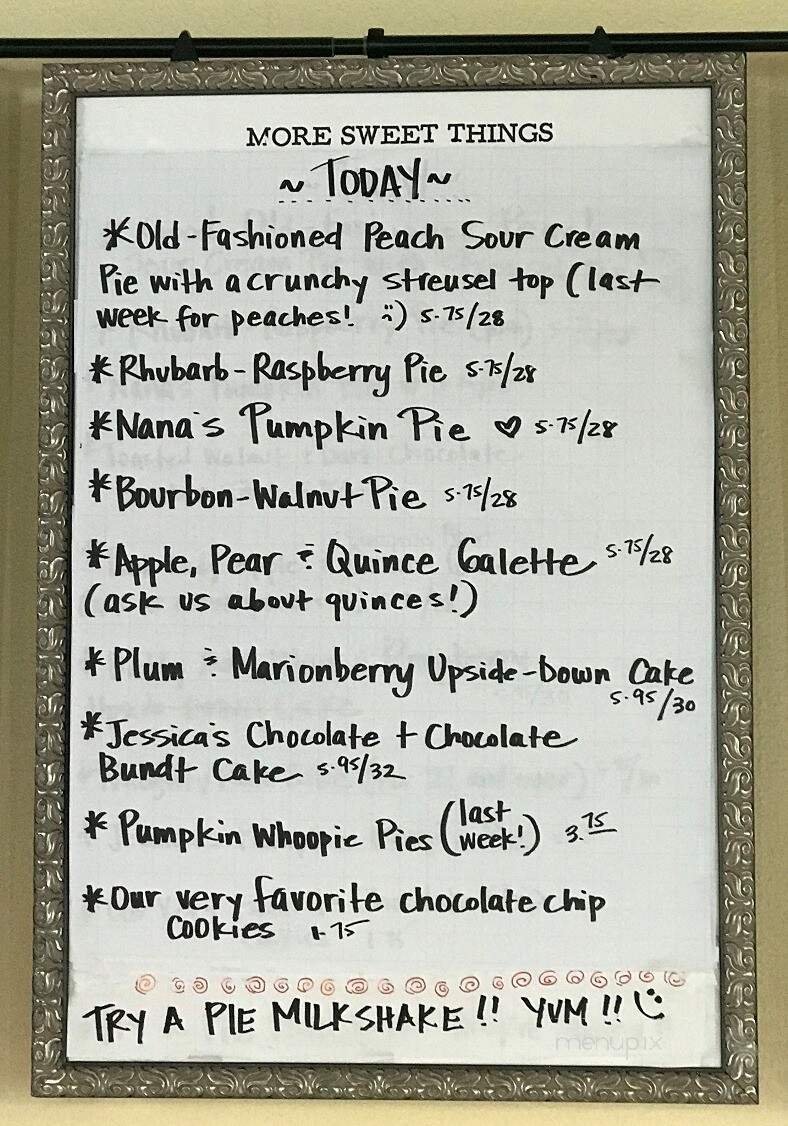 MORE SWEET THINGS
~ TODAY ~
*Old-Fashioned Peach Sour Cream
Pie with a crunchy streusel top (last
week for peaches! :) 5.75/28
*Rhubarb-Raspberry Pie 5.75/28
*Nana's Pumpkin Pie ♡ 5.75/28
*Bourbon-Walnut Pie 5.75/28
*Apple, Pear & Quince Galette 5.75/28
(ask us about quinces!)
*Plum & Marionberry Upside-Down Cake
5.95/30
*Jessica's Chocolate + Chocolate
Bundt Cake 5.95/32
*Pumpkin Whoopie Pies (last week!) 3.75
*Our very favorite chocolate chip
cookies 1.75
TRY A PIE MILKSHAKE!! YUM!! :)
menupix